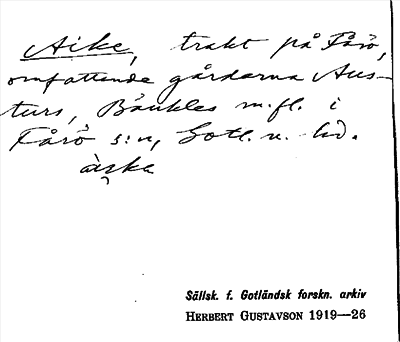 Aike, trakt på Fårö,
omfattande gårdarna Aus-
turs, Bänkles m.fl. i
Fårö s:n, Gotl. n. hd.
äi̯ske
Sällsk. f. Gotländsk forskn. arkiv
HERBERT GUSTAVSON 1919—26